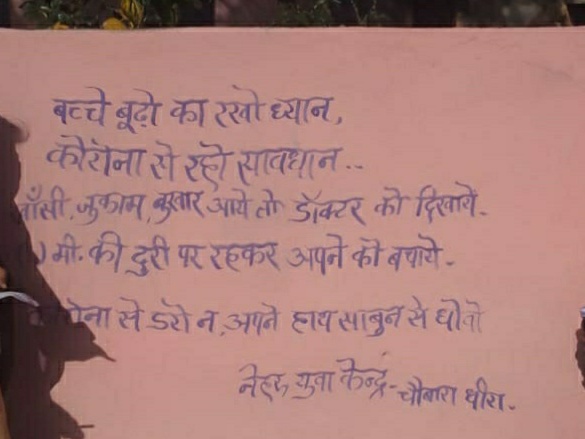 बच्चे बूढ़ो का रखो ध्यान,
कोरोना से रहो सावधान..
खाँसी, जुकाम, बुखार आये तो डॉक्टर को दिखाये.
मी. की दुरी पर रहकर अपने को बचाये.
कोरोना से डरो न, अपने हाथ साबुन से धोवो
नेहरु युवा केन्द्र - चौबारा धीरा.